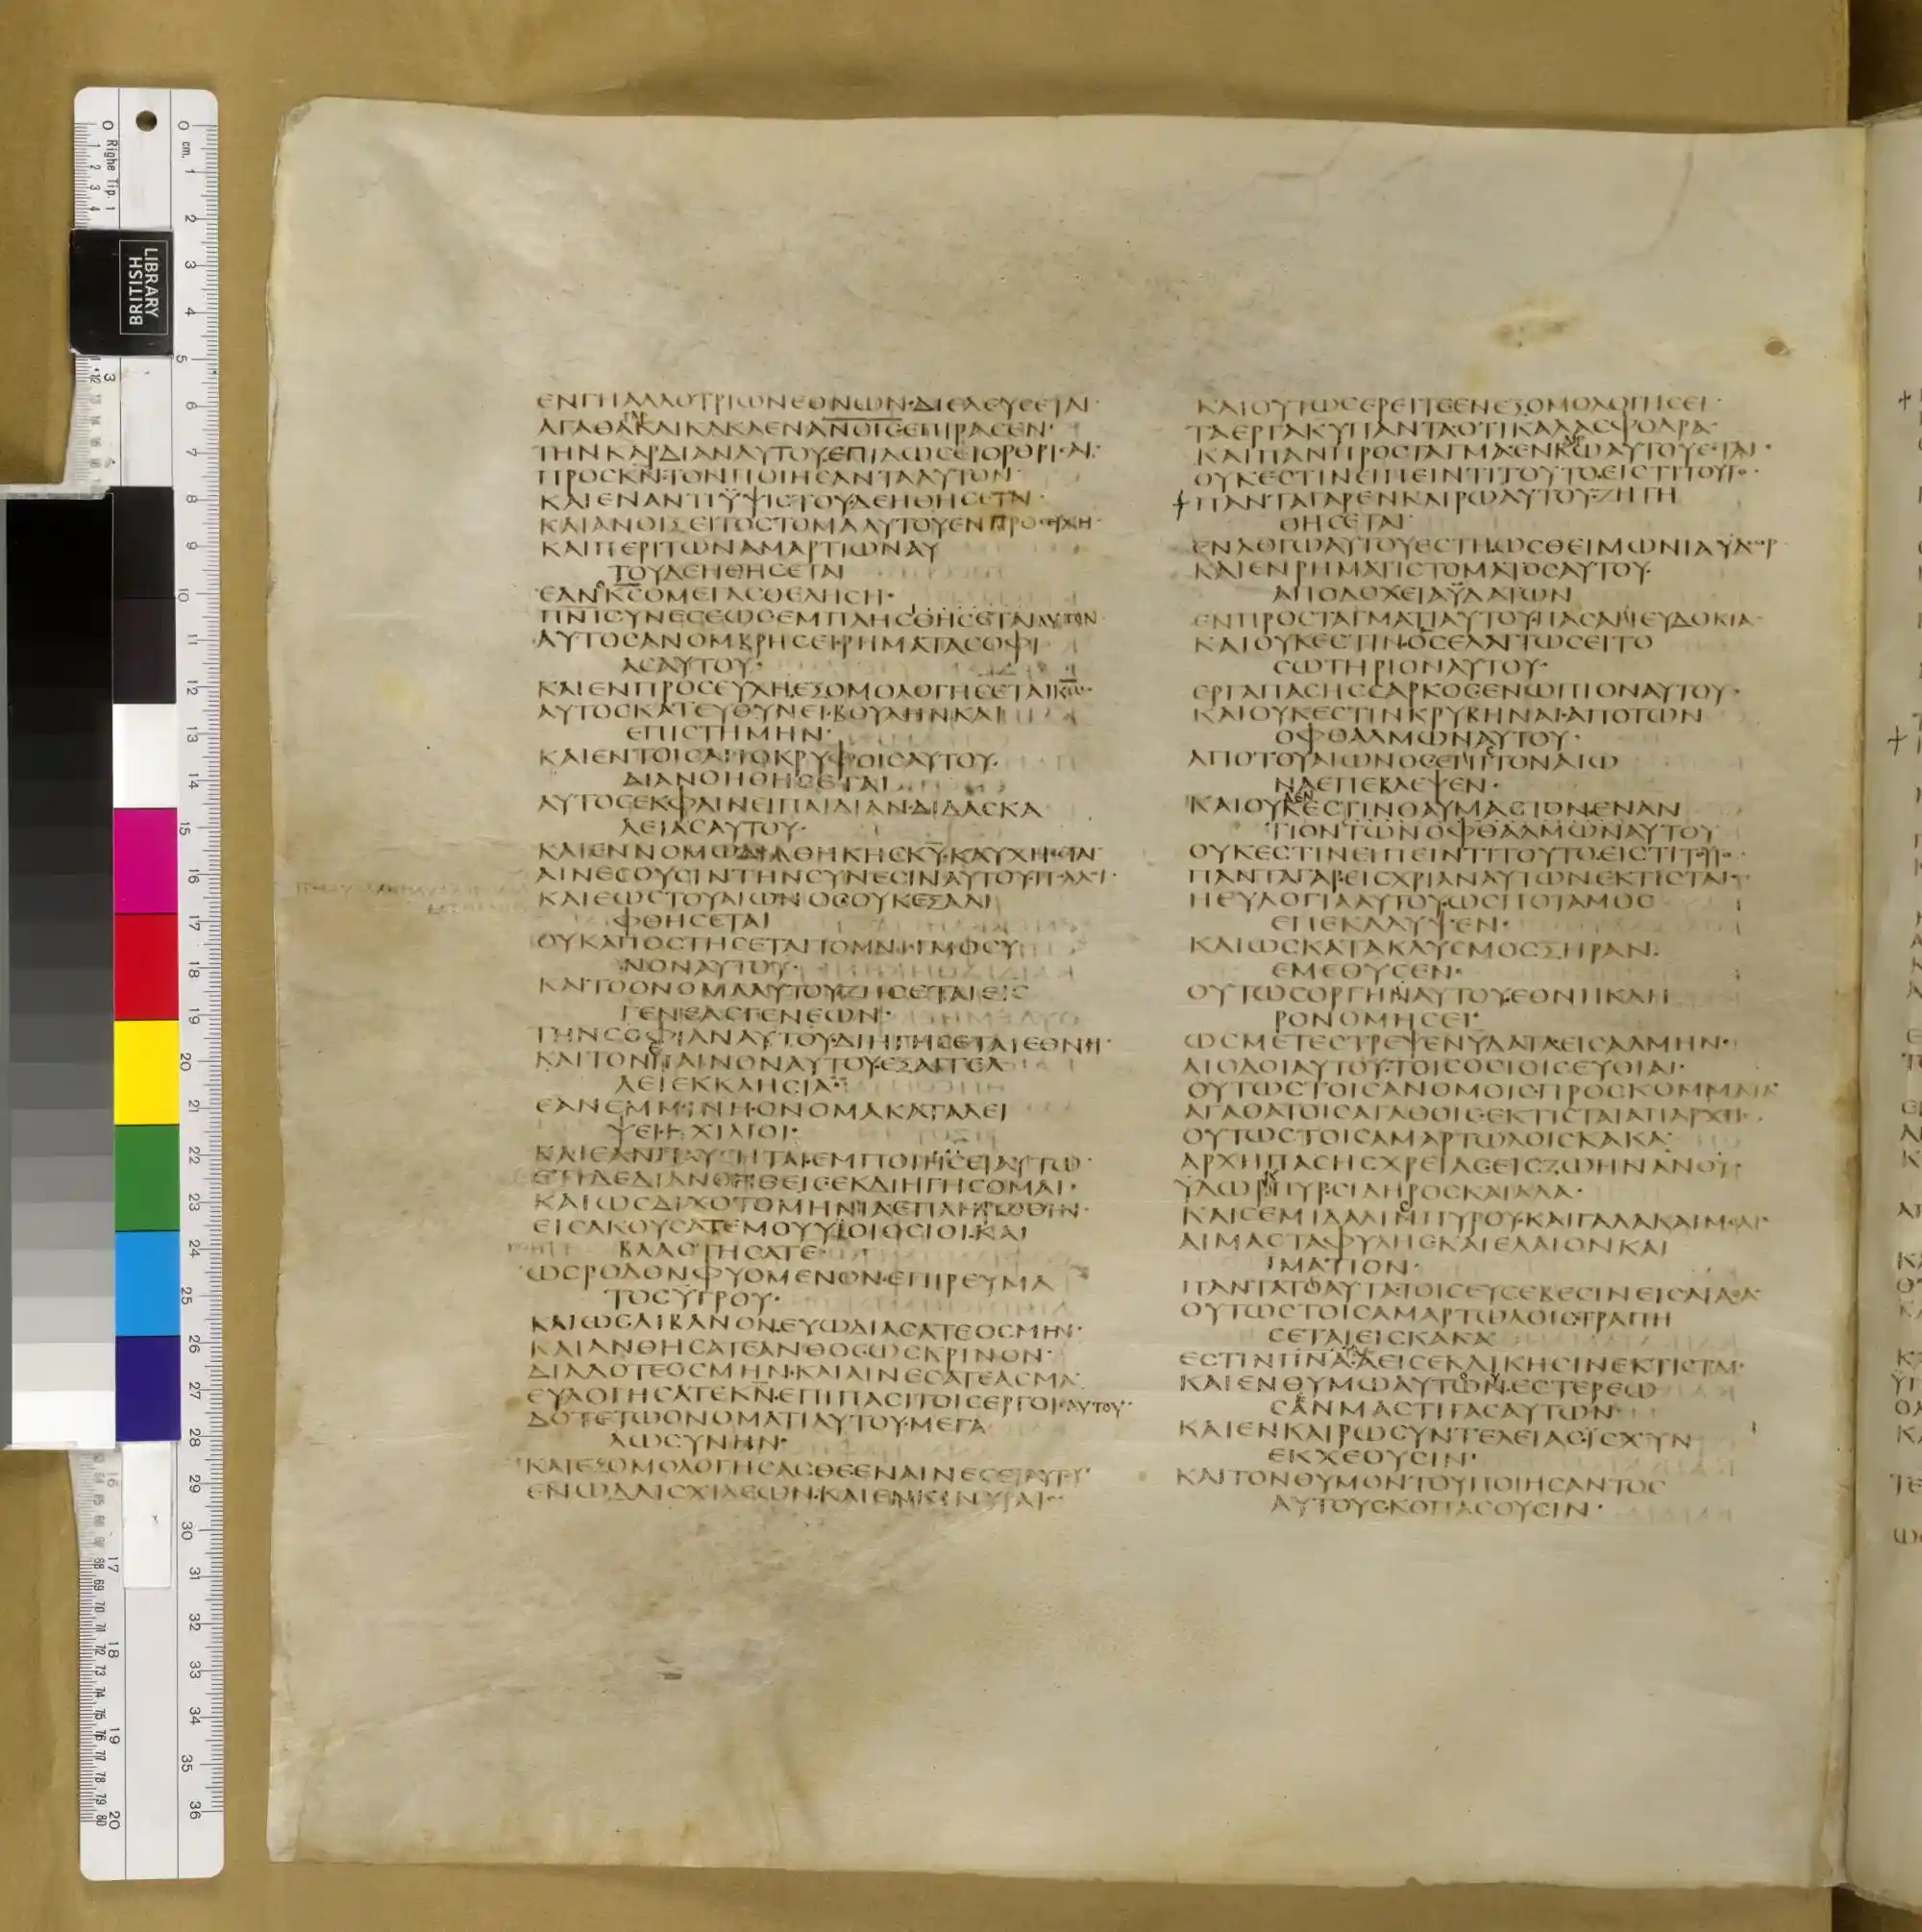 ΕΝΓΗΑΛΛΟΤΡΙΩΝΕΘΝΩΝ·ΔΙΕΛΕΥϹΕΤΑΙ·
ΑΓΑΘΑΚΑΙΚΑΚΑΕΝΑΝΟΙϹΕΠΙΡΑϹΕΝ·
ΤΗΝΚΑΡΔΙΑΝΑΥΤΟΥΕΠΙΔΩϹΕΙΟΡΘΡΙϹΑΙ·
ΠΡΟϹΚΝ·ΤΟΝΠΟΙΗϹΑΝΤΑΑΥΤΟΝ
ΚΑΙΕΝΑΝΤΙΫΨΙϹΤΟΥΔΕΗΘΗϹΕΤΑΙ·
ΚΑΙΑΝΟΙΞΕΙΤΟϹΤΟΜΑΑΥΤΟΥΕΝΠΡΟϹΕΥΧΗ·
ΚΑΙΠΕΡΙΤΩΝΑΜΑΡΤΙΩΝΑΥ
ΤΟΥΔΕΗΘΗϹΕΤΑΙ
ΕΑΝΚϹΟΜΕΓΑϹΘΕΛΗϹΗ·
ΠΝΙϹΥΝΕϹΕΩϹΕΜΠΛΗϹΘΗϹΕΤΑΙΑΥΤΟΝ
ΑΥΤΟϹΑΝΟΜΒΡΗϹΕΙ·ΡΗΜΑΤΑϹΟΦΙ
ΑϹΑΥΤΟΥ·
ΚΑΙΕΝΠΡΟϹΕΥΧΗΕΞΟΜΟΛΟΓΗϹΕΤΑΙΚΩ·
ΑΥΤΟϹΚΑΤΕΥΘΥΝΕΙ·ΒΟΥΛΗΝΚΑΙ
ΕΠΙϹΤΗΜΗΝ·
ΚΑΙΕΝΤΟΙϹΑΠΟΚΡΥΦΟΙϹΑΥΤΟΥ·
ΔΙΑΝΟΗΘΗϹΕΤΑΙ
ΑΥΤΟϹΕΚΦΑΙΝΕΙΠΑΙΔΙΑΝ·ΔΙΔΑϹΚΑ
ΛΕΙΑϹΑΥΤΟΥ·
ΚΑΙΕΝΝΟΜΩΔΙΑΘΗΚΗϹΚΥ·ΚΑΥΧΗϹΕΤΑΙ
ΑΙΝΕϹΟΥϹΙΝΤΗΝϹΥΝΕϹΙΝΑΥΤΟΥΠΟΛΛΟΙ·
ΚΑΙΕΩϹΤΟΥΑΙΩΝΟϹΟΥΚΕΞΑΛΙ
ΦΘΗϹΕΤΑΙ
ΟΥΚΑΠΟϹΤΗϹΕΤΑΙΤΟΜΝΗΜΟϹΥ
ΝΟΝΑΥΤΟΥ·
ΚΑΙΤΟΟΝΟΜΑΑΥΤΟΥΖΗϹΕΤΑΙΕΙϹ
ΓΕΝΕΑϹΓΕΝΕΩΝ·
ΤΗΝϹΟΦΙΑΝΑΥΤΟΥΔΙΗΓΗϹΕΤΑΙΕΘΝΗ·
ΚΑΙΤΟΝΕΠΑΙΝΟΝΑΥΤΟΥΕΞΑΓΓΕΛ
ΛΕΙΕΚΚΛΗϹΙΑ·
ΕΑΝΕΜΜΙΝΗ·ΟΝΟΜΑΚΑΤΑΛΕΙ
ΨΕΙΗΧΙΛΙΟΙ·
ΚΑΙΕΑΝΑΝΑΠΑΥϹΗΤΑΙ·ΕΜΠΟΙΗϹΕΙΑΥΤΩ
ΕΤΙΔΕΔΙΑΝΟΗΘΕΙϹΕΚΔΙΗΓΗϹΟΜΑΙ·
ΚΑΙΩϹΔΙΧΟΤΟΜΗΝΙΑΕΠΛΗΡΩΘΗΝ·
ΕΙϹΑΚΟΥϹΑΤΕΜΟΥΥΙΟΙΟϹΙΟΙ·ΚΑΙ
ΒΛΑϹΤΗϹΑΤΕ·
ΩϹΡΟΔΟΝΦΥΟΜΕΝΟΝ·ΕΠΙΡΕΥΜΑ
ΤΟϹΥΓΡΟΥ·
ΚΑΙΩϹΛΙΒΑΝΟΝ·ΕΥΩΔΙΑϹΑΤΕΟϹΜΗΝ·
ΚΑΙΑΝΘΗϹΑΤΕΑΝΘΟϹΩϹΚΡΙΝΟΝ·
ΔΙΑΔΟΤΕΟϹΜΗΝ·ΚΑΙΑΙΝΕϹΑΤΕΑϹΜΑ
ΕΥΛΟΓΗϹΑΤΕΚΝ·ΕΠΙΠΑϹΙΤΟΙϹΕΡΓΟΙϹΑΥΤΟΥ
ΔΟΤΕΤΩΟΝΟΜΑΤΙΑΥΤΟΥ·ΜΕΓΑ
ΛΩϹΥΝΗΝ·
ΚΑΙΕΞΟΜΟΛΟΓΗϹΑϹΘΕΕΝΑΙΝΕϹΕΙΑΥΤΟΥ
ΕΝΩΔΑΙϹΧΙΛΕΩΝ·ΚΑΙΕΝΚΙΝΥΡΑΙϹ
ΚΑΙΟΥΤΩϹΕΡΕΙΤΕΕΝΕΞΟΜΟΛΟΓΗϹΕΙ·
ΤΑΕΡΓΑΚΥΠΑΝΤΑΟΤΙΚΑΛΑϹΦΟΔΡΑ·
ΚΑΙΠΑΝΠΡΟϹΤΑΓΜΑΕΝΚΑΙΡΩΑΥΤΟΥΕϹΤΑΙ·
ΟΥΚΕϹΤΙΝΕΙΠΕΙΝΤΙΤΟΥΤΟ·ΕΙϹΤΙΤΟΥΤΟ·
ΠΑΝΤΑΓΑΡΕΝΚΑΙΡΩΑΥΤΟΥ·ΖΗΤΗ
ΘΗϹΕΤΑΙ·
ΕΝΛΟΓΩΑΥΤΟΥΕϹΤΗΩϹΘΕΙΜΩΝΙΑΥΔΩΡ
ΚΑΙΕΝΡΗΜΑΤΙϹΤΟΜΑΤΟϹΑΥΤΟΥ·
ΑΠΟΔΟΧΕΙΑΫΔΑΤΩΝ
ΕΝΠΡΟϹΤΑΓΜΑΤΙΑΥΤΟΥ·ΠΑϹΑΗΕΥΔΟΚΙΑ·
ΚΑΙΟΥΚΕϹΤΙΝ·ΟϹΕΛΑΤΤΩϹΕΙΤΟ
ϹΩΤΗΡΙΟΝΑΥΤΟΥ·
ΕΡΓΑΠΑϹΗϹϹΑΡΚΟϹΕΝΩΠΙΟΝΑΥΤΟΥ·
ΚΑΙΟΥΚΕϹΤΙΝΚΡΥΒΗΝΑΙ·ΑΠΟΤΩΝ
ΟΦΘΑΛΜΩΝΑΥΤΟΥ·
ΑΠΟΤΟΥΑΙΩΝΟϹΕΙϹΤΟΝΑΙΩ
ΝΑΕΠΕΒΛΕΨΕΝ·
ΚΑΙΟΥΔΕΝΕϹΤΙΝΘΑΥΜΑϹΙΟΝΕΝΑΝ
ΤΙΟΝΤΩΝΟΦΘΑΛΜΩΝΑΥΤΟΥ
ΟΥΚΕϹΤΙΝΕΙΠΕΙΝΤΙΤΟΥΤΟ·ΕΙϹΤΙΤΟΥΤΟ·
ΠΑΝΤΑΓΑΡΕΙϹΧΡΙΑΝΑΥΤΩΝΕΚΤΙϹΤΑΙ·
ΗΕΥΛΟΓΙΑΑΥΤΟΥ·ΩϹΠΟΤΑΜΟϹ
ΕΠΕΚΑΛΥΨΕΝ·
ΚΑΙΩϹΚΑΤΑΚΛΥϹΜΟϹΞΗΡΑΝ·
ΕΜΕΘΥϹΕΝ·
ΟΥΤΩϹΟΡΓΗΝΑΥΤΟΥ·ΕΘΝΗΚΛΗ
ΡΟΝΟΜΗϹΕΙ·
ΩϹΜΕΤΕϹΤΡΕΨΕΝΥΔΑΤΑΕΙϹΑΛΜΗΝ·
ΑΙΟΔΟΙΑΥΤΟΥ·ΤΟΙϹΟϹΙΟΙϹΕΥΘΙΑΙ·
ΟΥΤΩϹΤΟΙϹΑΝΟΜΟΙϹ·ΠΡΟϹΚΟΜΜΑΤΑ
ΑΓΑΘΑΤΟΙϹΑΓΑΘΟΙϹ·ΕΚΤΙϹΤΑΙΑΠΑΡΧΗϹ·
ΟΥΤΩϹΤΟΙϹΑΜΑΡΤΩΛΟΙϹΚΑΚΑ·
ΑΡΧΗΠΑϹΗϹΧΡΕΙΑϹΕΙϹΖΩΗΝΑΝΟΥ·
ΥΔΩΡΠΥΡ·ϹΙΔΗΡΟϹΚΑΙΑΛΑ·
ΚΑΙϹΕΜΙΔΑΛΙϹΠΥΡΟΥ·ΚΑΙΓΑΛΑΚΑΙΜΕΛΙ·
ΑΙΜΑϹΤΑΦΥΛΗϹΚΑΙΕΛΑΙΟΝΚΑΙ
ΙΜΑΤΙΟΝ·
ΠΑΝΤΑΤΑΥΤΑΤΟΙϹΕΥϹΕΒΕϹΙΝΕΙϹΑΓΑΘΑ·
ΟΥΤΩϹΤΟΙϹΑΜΑΡΤΩΛΟΙϹ·ΤΡΑΠΗ
ϹΕΤΑΙΕΙϹΚΑΚΑ
ΕϹΤΙΝΠΝΑΤΑ·ΑΕΙϹΕΚΔΙΚΗϹΙΝΕΚΤΙϹΤΑΙ·
ΚΑΙΕΝΘΥΜΩΑΥΤΩΝ·ΕϹΤΕΡΕΩ
ϹΑΝΜΑϹΤΙΓΑϹΑΥΤΩΝ·
ΚΑΙΕΝΚΑΙΡΩϹΥΝΤΕΛΕΙΑϹΙϹΧΥΝ
ΕΚΧΕΟΥϹΙΝ·
ΚΑΙΤΟΝΘΥΜΟΝΤΟΥΠΟΙΗϹΑΝΤΟϹ
ΑΥΤΟΥϹΚΟΠΑϹΟΥϹΙΝ·
BRITISH
LIBRARY